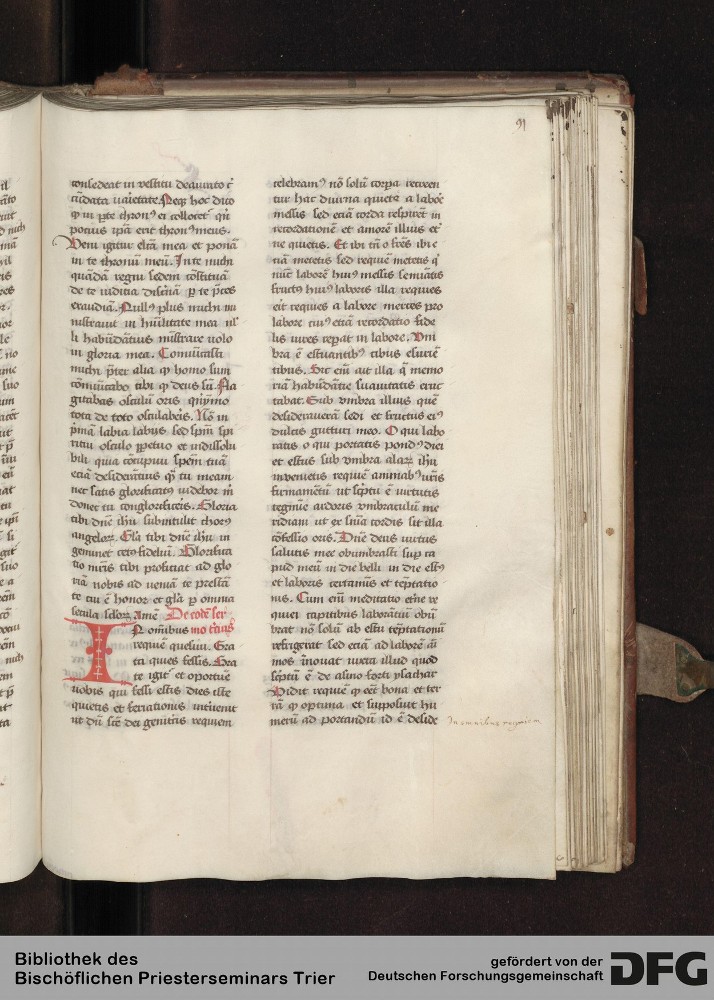 91
consedeat in vestitu deaurato c̄
cūdata uaietate. Neqꝫ hoc dico
ꝙ in ꝑte thronꝰ ei collocet̄ qn̄
potius ip̄a erit thronꝰ meus.
Veni igitur elc̄a mea et ponā
in te thronū meū. In te michi
quādā regni sedem cōstituā
de te iudicia discnā ꝑ te p̄ces
exaudiā. Nullꝰ plus michi mi
nistrauit in hūilitate mea nł
li habūdātius mīstrare uolo
in gloria mea. Cōmūicasti
michi p̄ter alia ꝙ homo sum
cōmūicabo tibi ꝙ deus sū. Fla
gitabas osculū oris quȳmo
tota de toto osculabeis. Nō in
p̄mā labia labijs sed sp̄m sp̄i
ritui osculo ꝑpetuo et indissolu
bili quia cōcupiui sp̄em tuā
eciā desiderātius qͣ tu meam
nec satis glorificatꝰ uidebor m̄
donec tu conglorificeis. Gloria
tibi dn̄e ih̄u subintulit chorꝰ
angeloꝝ. Gl̄a tibi dn̄e ih̄u in
geminet cetꝰ fideliū. Glorifica
tio mr̄is tibi proficiat ad glo
riā nobis ad ueniā te prestā
te cui ē honor et gl̄a ꝑ omnia
secula sclorꝝ Amē De eodē ser
In omibus mo t̄ciꝰ
requiē quesiui. Gra
ta quies fessis. Gra
te igit̄ et oportūe
uobis qui fessi estis dies iste
quietis et feriationis intuenit
ut dū sc̄e dei genitͥis requiem
celebramꝰ nō solū corꝑa recreen
tur hac diurna quiete a laborē
messis sed eciā corda respirēt in
recordationē et amorē illius et̄
ne quietis. Et ibi tn̄ o fr̄es ibi e
ciā metetis sed requiē metetis q̄
nūc laborē huiꝰ messis semīatis
fructꝰ huiꝰ laboris illa requies
eit requies a labore merces pro
labore cuiꝰ eciā recordatio fide
lis uires reꝑat in labore. Vm
bra ē estuantibꝰ cibus esuriē
tibus. Sic em̄ ait illa q̄ memo
riā habūdātie suauitatis eruc
tabat. Sub vmbra illius quē
desideraueram sedi et fructus eiꝰ
dulcis gutturi meo. O qui labo
ratis o qui portatis pondꝰ diei
et estus sub vmbra alaꝝ ih̄u
inuenietis requiē animabꝰ ur̄is
firmamētū ut sc̄ptū ē uirtutis
tegimē ardoris vmbraculū me
ridiani ut ex sn̄ia cordis sit illa
cōfessio oris. Dn̄e deus uirtus
salutis mee obumbrasti sup̄ ca
pud meū in die belli in die estꝰ
et laboris certamīs et tēptatio
nis. Cum em̄ meditatio et̄ne re
quiei capitibus laborātiū obū
brat nō solū ab estu tēptationū
refrigerat sed eciā ad laborē āi
mos īnouat iuxta illud quod
sc̄ptū ē de asino forti ysachar
Vidit requiē ꝙ eēt bona et ter
rā ꝙ optima et supposuit hu
merū ad portandū id ē deside
In omnibus requiem
Bibliothek des
Bischöflichen Priesterseminars Trier
gefördert von der
Deutschen Forschungsgemeinschaft
DFG